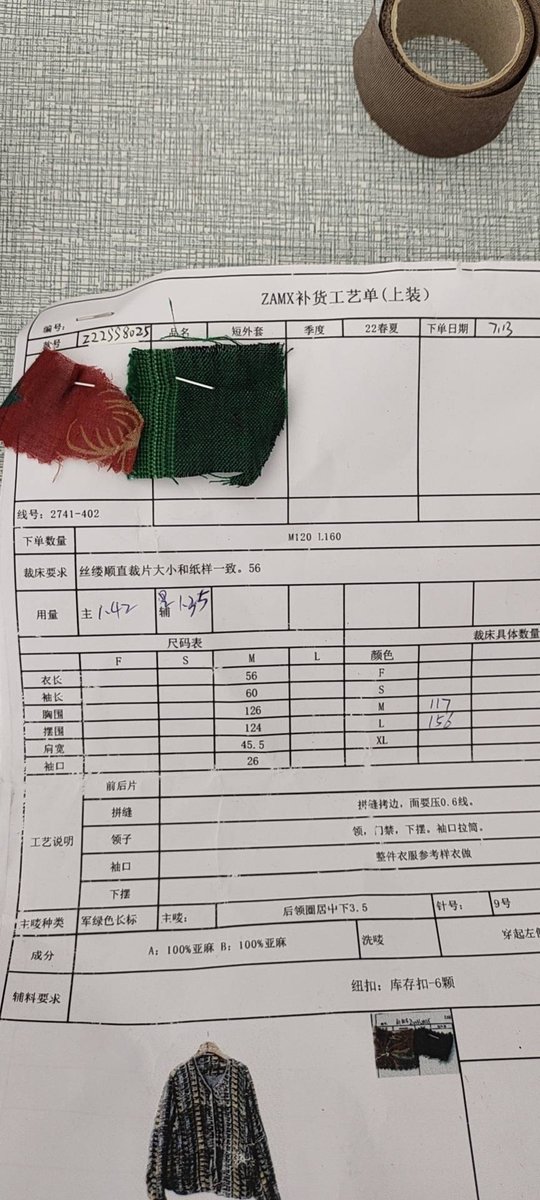 ZAMX补货工艺单(上装)
编号:
款号 Z22SS8025 品名 短外套 季度 22春夏 下单日期 7.13
线号: 2741-402
下单数量 M120 L160
裁床要求 丝缕顺直裁片大小和纸样一致。56
用量 主 1.42 辅 1.35
尺码表 裁床具体数量
F S M L 颜色
衣长 56 F
袖长 60 S
胸围 126 M 117
摆围 124 L 156
肩宽 45.5 XL
袖口 26
工艺说明
前后片
拼缝 拼缝拷边，而要压0.6线。
领子 领，门禁，下摆。袖口拉筒。
袖口 整件衣服参考样衣做
下摆
主唛种类 军绿色长标 主唛: 后领圈居中下3.5 针号: 9号
成分 A; 100%亚麻 B; 100%亚麻 洗唛 穿起左侧
辅料要求 纽扣: 库存扣-6颗